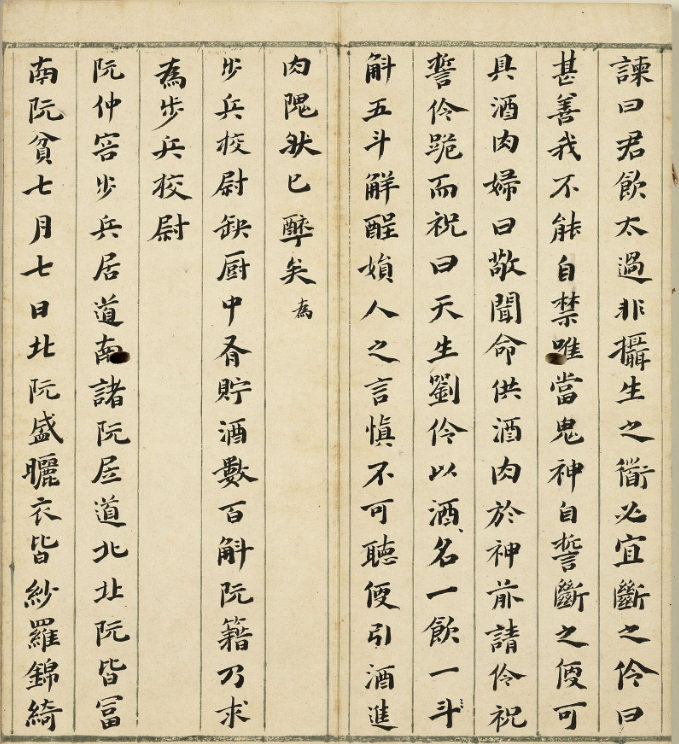 諫曰君飲太過非攝生之衟必宜斷之伶曰
甚善我不能自禁唯當鬼神自誓斷之便可
具酒肉婦曰敬聞命供酒肉於神前請伶祝
誓伶跪而祝曰天生劉伶以酒名一飲一斗
斛五斗解酲媍人之言慎不可聽便引酒進
肉隗然已醉矣為
步兵校尉缺厨中有貯酒數百斛阮籍乃求
為步兵校尉
阮仲容步兵居道南諸阮居道北北阮皆冨
南阮貧七月七日北阮盛曬衣皆紗羅錦綺